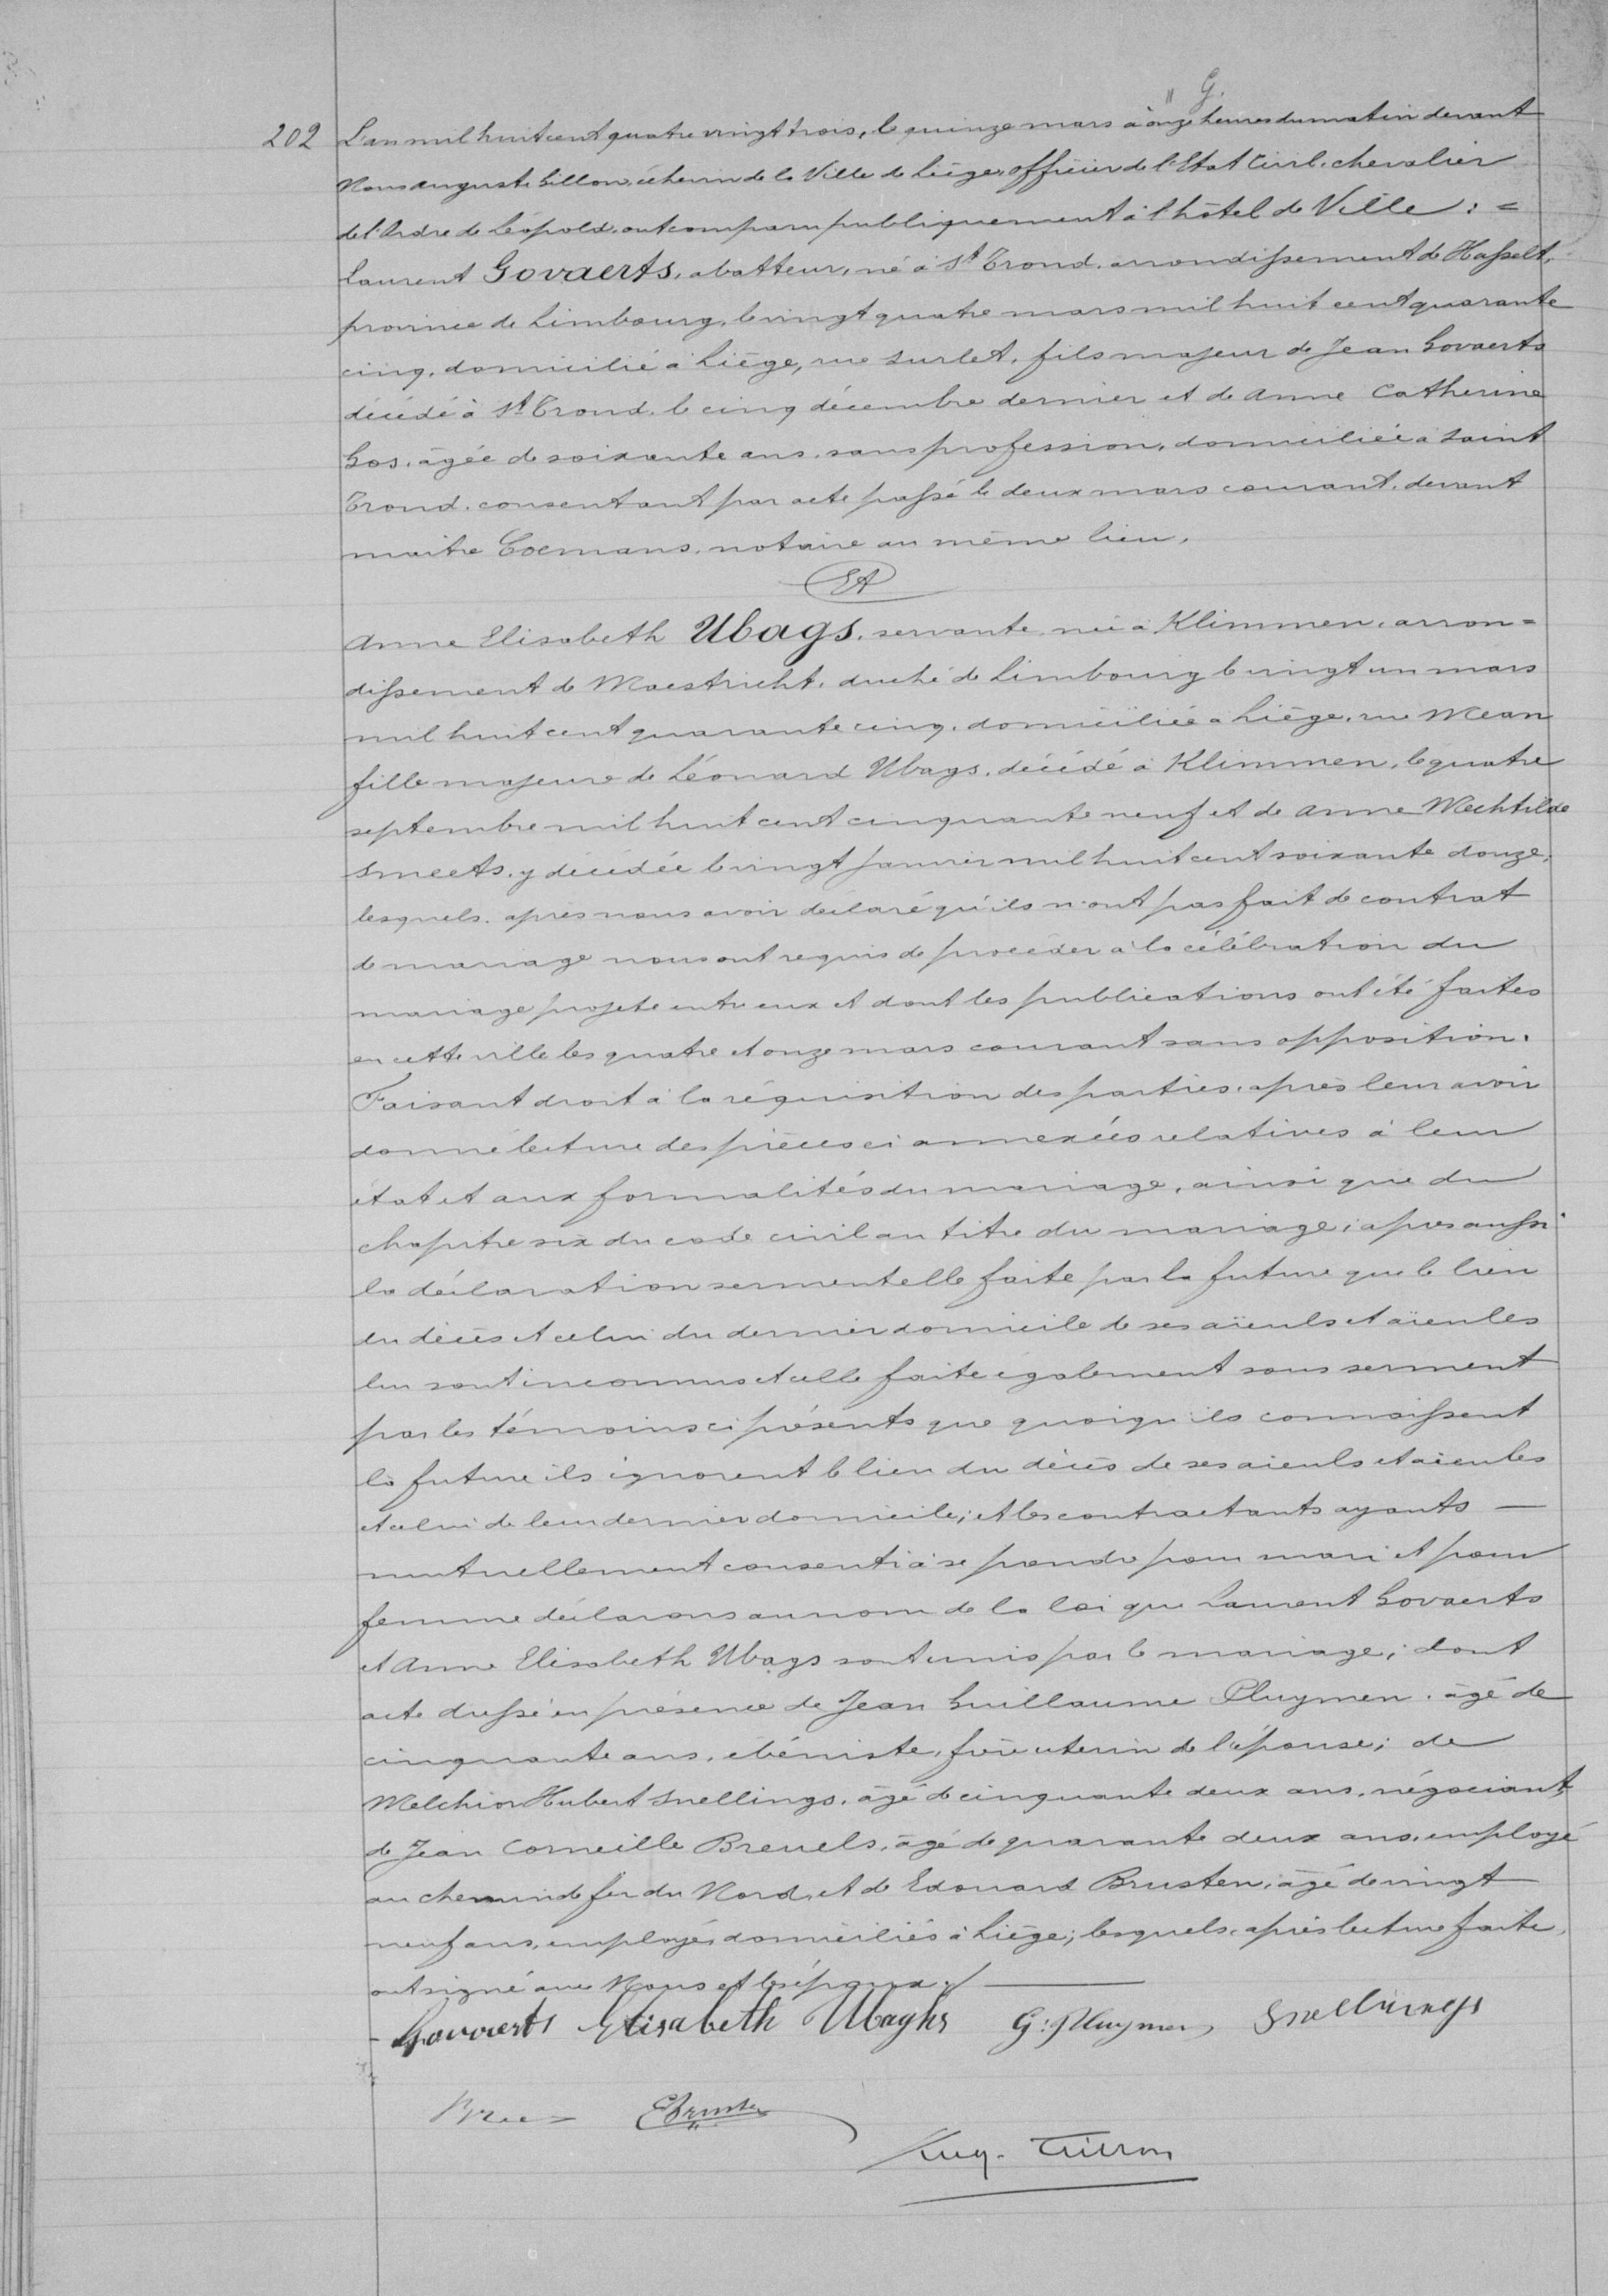 " G.
202 L'an mil huit cent quatre vingt trois, le quinze mars à onze heures du matin devant
Nous Auguste Gillon, échevin de la Ville de Liége, officier de l'Etat Civil, chevalier
de l'Ordre de Léopold, ont comparu publiquement à l'hôtel de Ville : =
Laurent Govaerts, abatteur, né à St Trond, arrondissement de Hasselt,
province de Limbourg, le vingt quatre mars mil huit cent quarante
cinq, domicilié à Liége, rue Surlet, fils majeur de Jean Govaerts
décédé à St Trond, le cinq décembre dernier et de Anne Catherine
Gos, âgée de soixante ans, sans profession, domiciliée à Saint
Trond, consentant par acte passé le deux mars courant, devant
maître Coemans, notaire au même lieu,
Et
Anne Elisabeth Ubags, servante, née à Klimmen, arron=
dissement de Maestricht, duché de Limbourg le vingt un mars
mil huit cent quarante cinq, domiciliée à Liége, rue Mean
fille majeure de Léonard Ubags, décédé à Klimmen, le quatre
septembre mil huit cent cinquante neuf et de Anne Mechtilde
Smeets, y décédée le vingt janvier mil huit cent soixante douze,
lesquels, après nous avoir déclaré qu'ils n'ont pas fait de contrat
de mariage nous ont requis de procéder à la célébration du
mariage projeté entre eux et dont les publications ont été faites
en cette ville les quatre et onze mars courant sans opposition.
Faisant droit à la réquisition des parties, après leur avoir
donné lecture des pièces ci annexées relatives à leur
état et aux formalités du mariage, ainsi que du
chapitre six du code civil au titre du mariage; après aussi
la déclaration sermentelle faite par la future que le lieu
du décès et celui du dernier domicile de ses aïeuls et aïeules
lui sont inconnus et celle faite également sous serment
par les témoins ci présents que quoiqu'ils connaissent
la future ils ignorent le lieu du décès de ses aïeuls et aïeules
et celui de leur dernier domicile; et les contractants ayants —
mutuellement consenti à se prendre pour mari et pour
femme déclarons au nom de la loi que Laurent Govaerts
et Anne Elisabeth Ubags sont unis par le mariage; dont
acte dressé en présence de Jean Guillaume Pluymen, âgé de
cinquante ans, ébéniste, frère uterin de l'épouse; de
Melchior Hubert Snellings, âgé de cinquante deux ans, négociant,
de Jean Corneille Breuels, âgé de quarante deux ans, employé
au chemin de fer du Nord, et de Edouard Brusten, âgé de vingt
neuf ans, employé, domiciliés à Liége; lesquels, après lecture faite,
ont signé avec Nous et les époux ./ ———
Govaerts Elisabeth Ubaghs G: Pluymen Snellings
E Brusten
Aug. Gillon